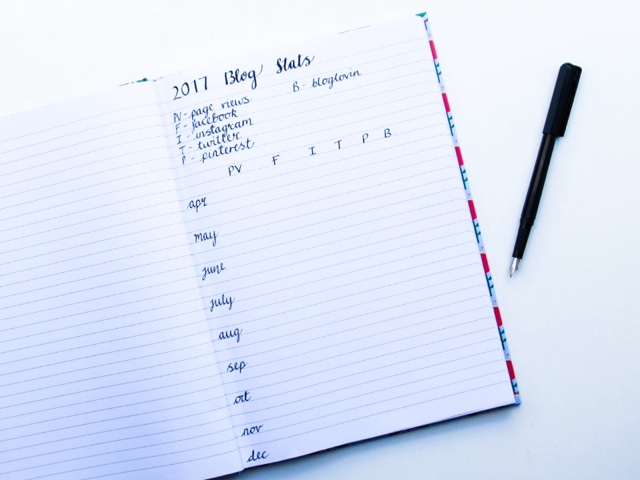 2017 Blog Stats
PV - page views
B - bloglovin
F - facebook
I - instagram
T - twitter
P - pinterest
PV F I T P B
apr
may
june
july
aug
sep
oct
nov
dec